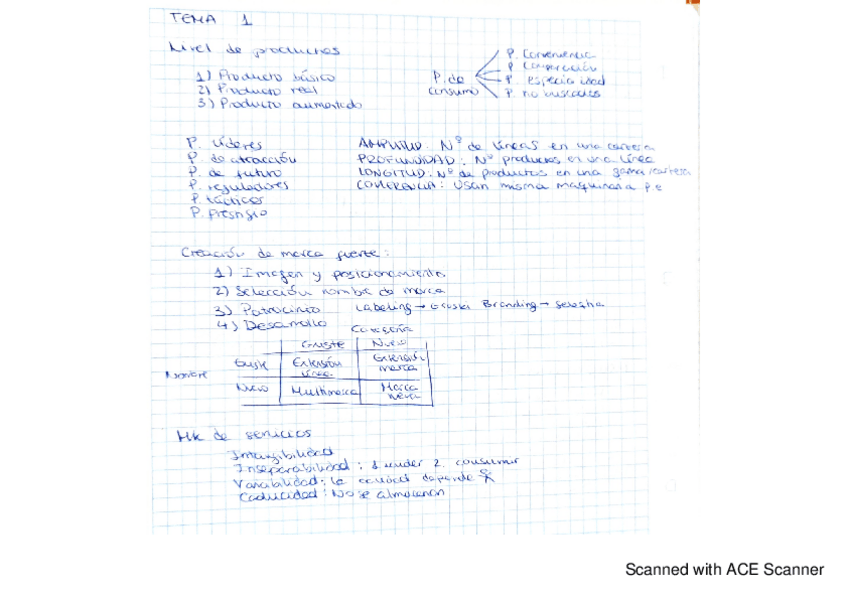 TEMA 1
Nivel de productos
1) Producto básico
2) Producto real
3) Producto aumentado
P. de consumo
P. Conveniencia
P. Comparación
P. especialidad
P. no buscados
P. líderes
P. de atracción
P. de futuro
P. reguladores
P. tácticos
P. Prestigio
AMPLITUD: Nº de líneas en una cartera
PROFUNDIDAD: Nº productos en una línea
LONGITUD: Nº de productos en una gama cartera
COHERENCIA: Usan misma maquinaria p e
Creación de marca fuerte:
1) Imagen y posicionamiento
2) Selección nombre de marca
3) Patrocinio Labeling → Eroski Branding →
4) Desarrollo
Categoría
Existe Nuevo
Nombre
Existe Extensión línea Extensión marca
Nuevo Multimarca Marca nueva
MK de servicios
Intangibilidad
Inseparabilidad: 1 vender 2. consumir
Variabilidad: la calidad depende
Caducidad: No se almacenan
Scanned with ACE Scanner